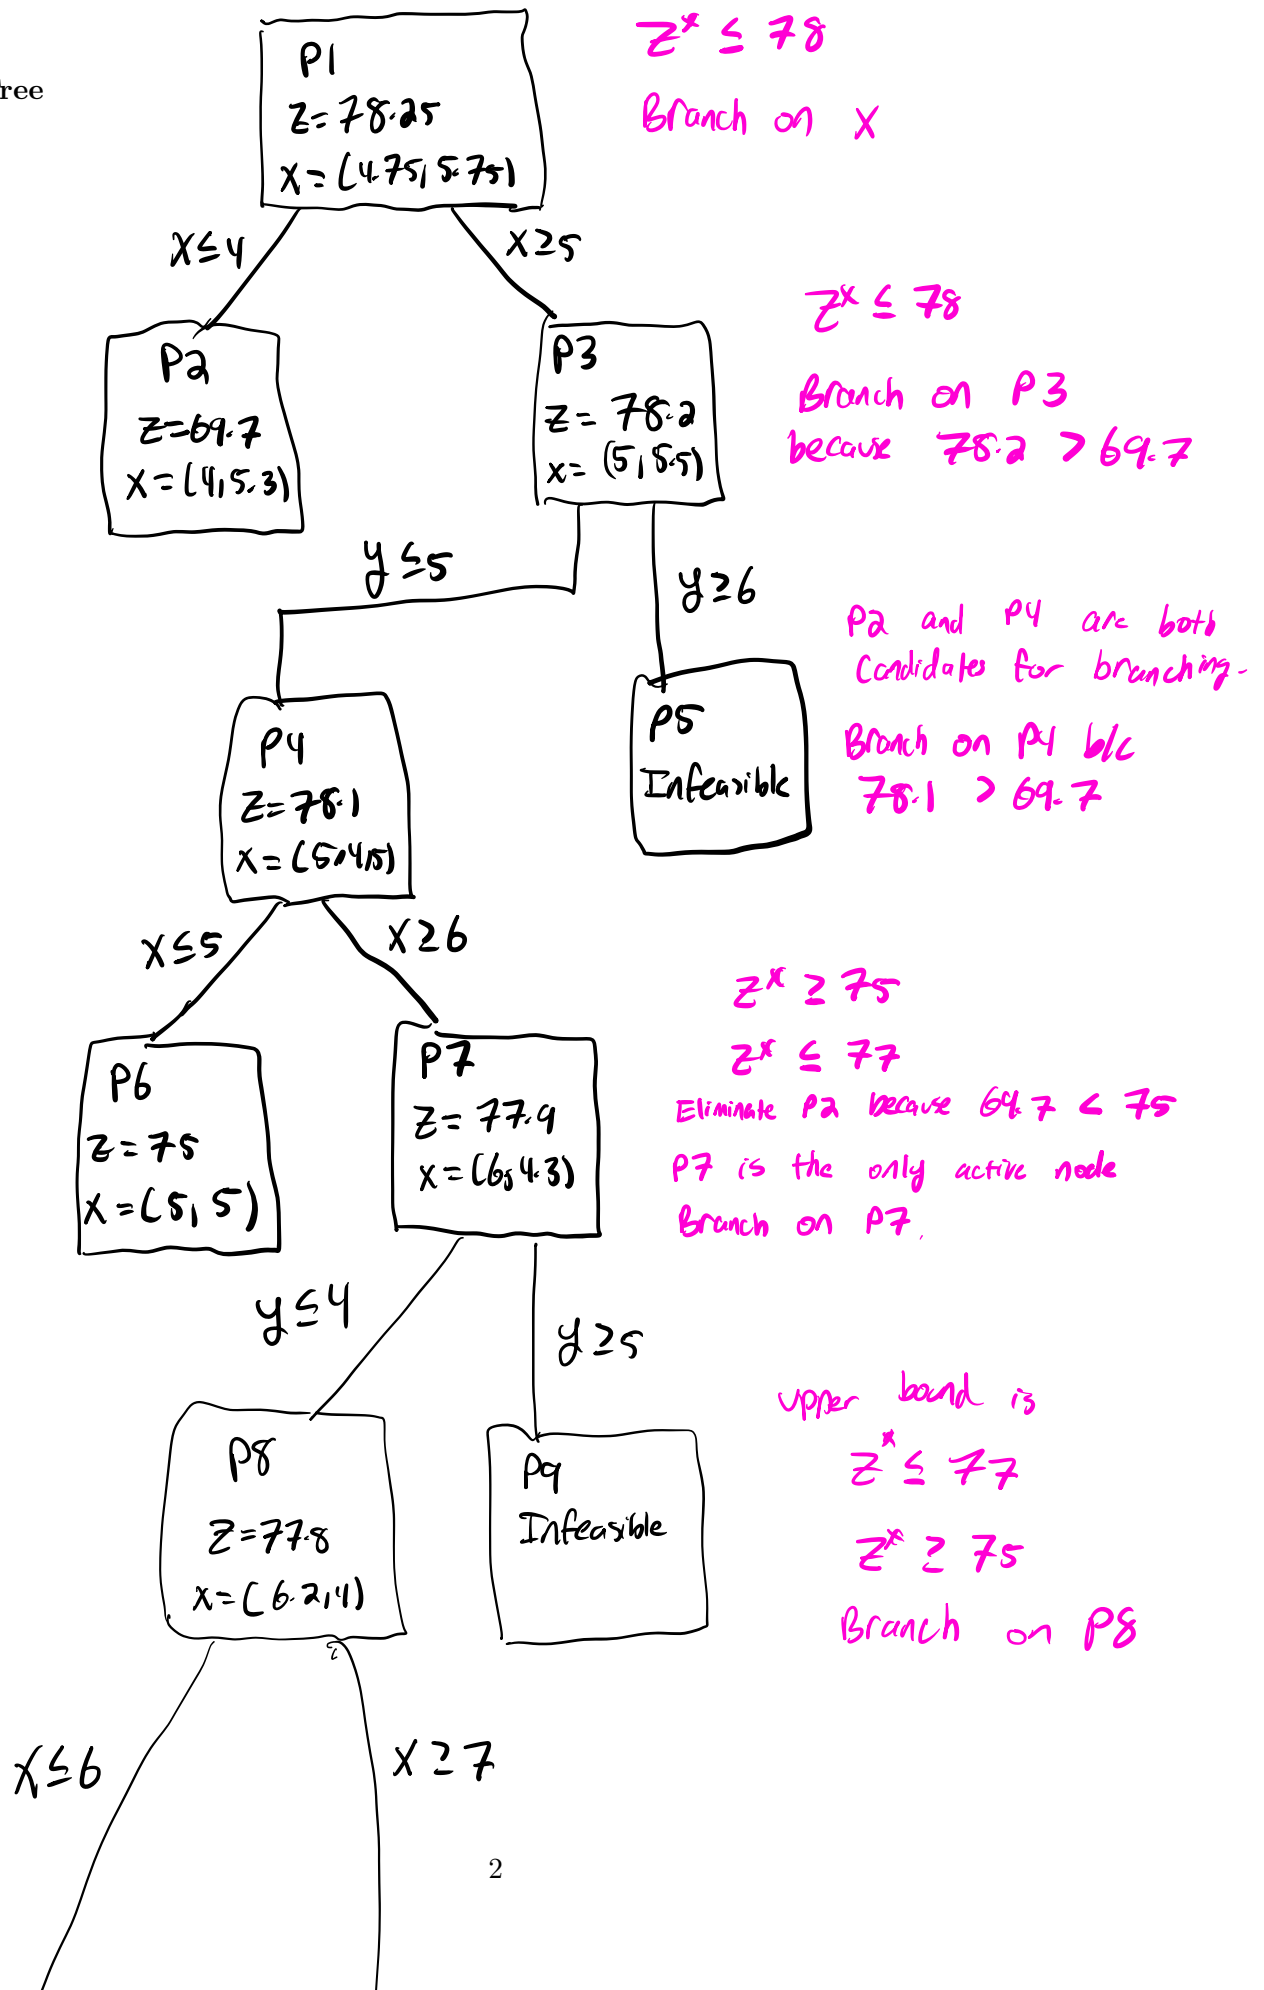 P1
z = 78.25
x = (4.75, 5.75)
z* ≤ 78
Branch on x
ree
x ≤ 4
x ≥ 5
P2
z = 69.7
x = (4, 5.3)
P3
z = 78.2
x = (5, 5.5)
z* ≤ 78
Branch on P3
because 78.2 > 69.7
y ≤ 5
y ≥ 6
P4
z = 78.1
x = (5.4, 5)
P5
Infeasible
P2 and P4 are both
Candidates for branching.
Branch on P4 b/c
78.1 > 69.7
x ≤ 5
x ≥ 6
P6
z = 75
x = (5, 5)
P7
z = 77.9
x = (6, 4.3)
z* ≥ 75
z* ≤ 77
Eliminate P2 because 69.7 < 75
P7 is the only active node
Branch on P7.
y ≤ 4
y ≥ 5
P8
z = 77.8
x = (6.2, 4)
P9
Infeasible
upper bound is
z* ≤ 77
z* ≥ 75
Branch on P8
x ≤ 6
x ≥ 7
2